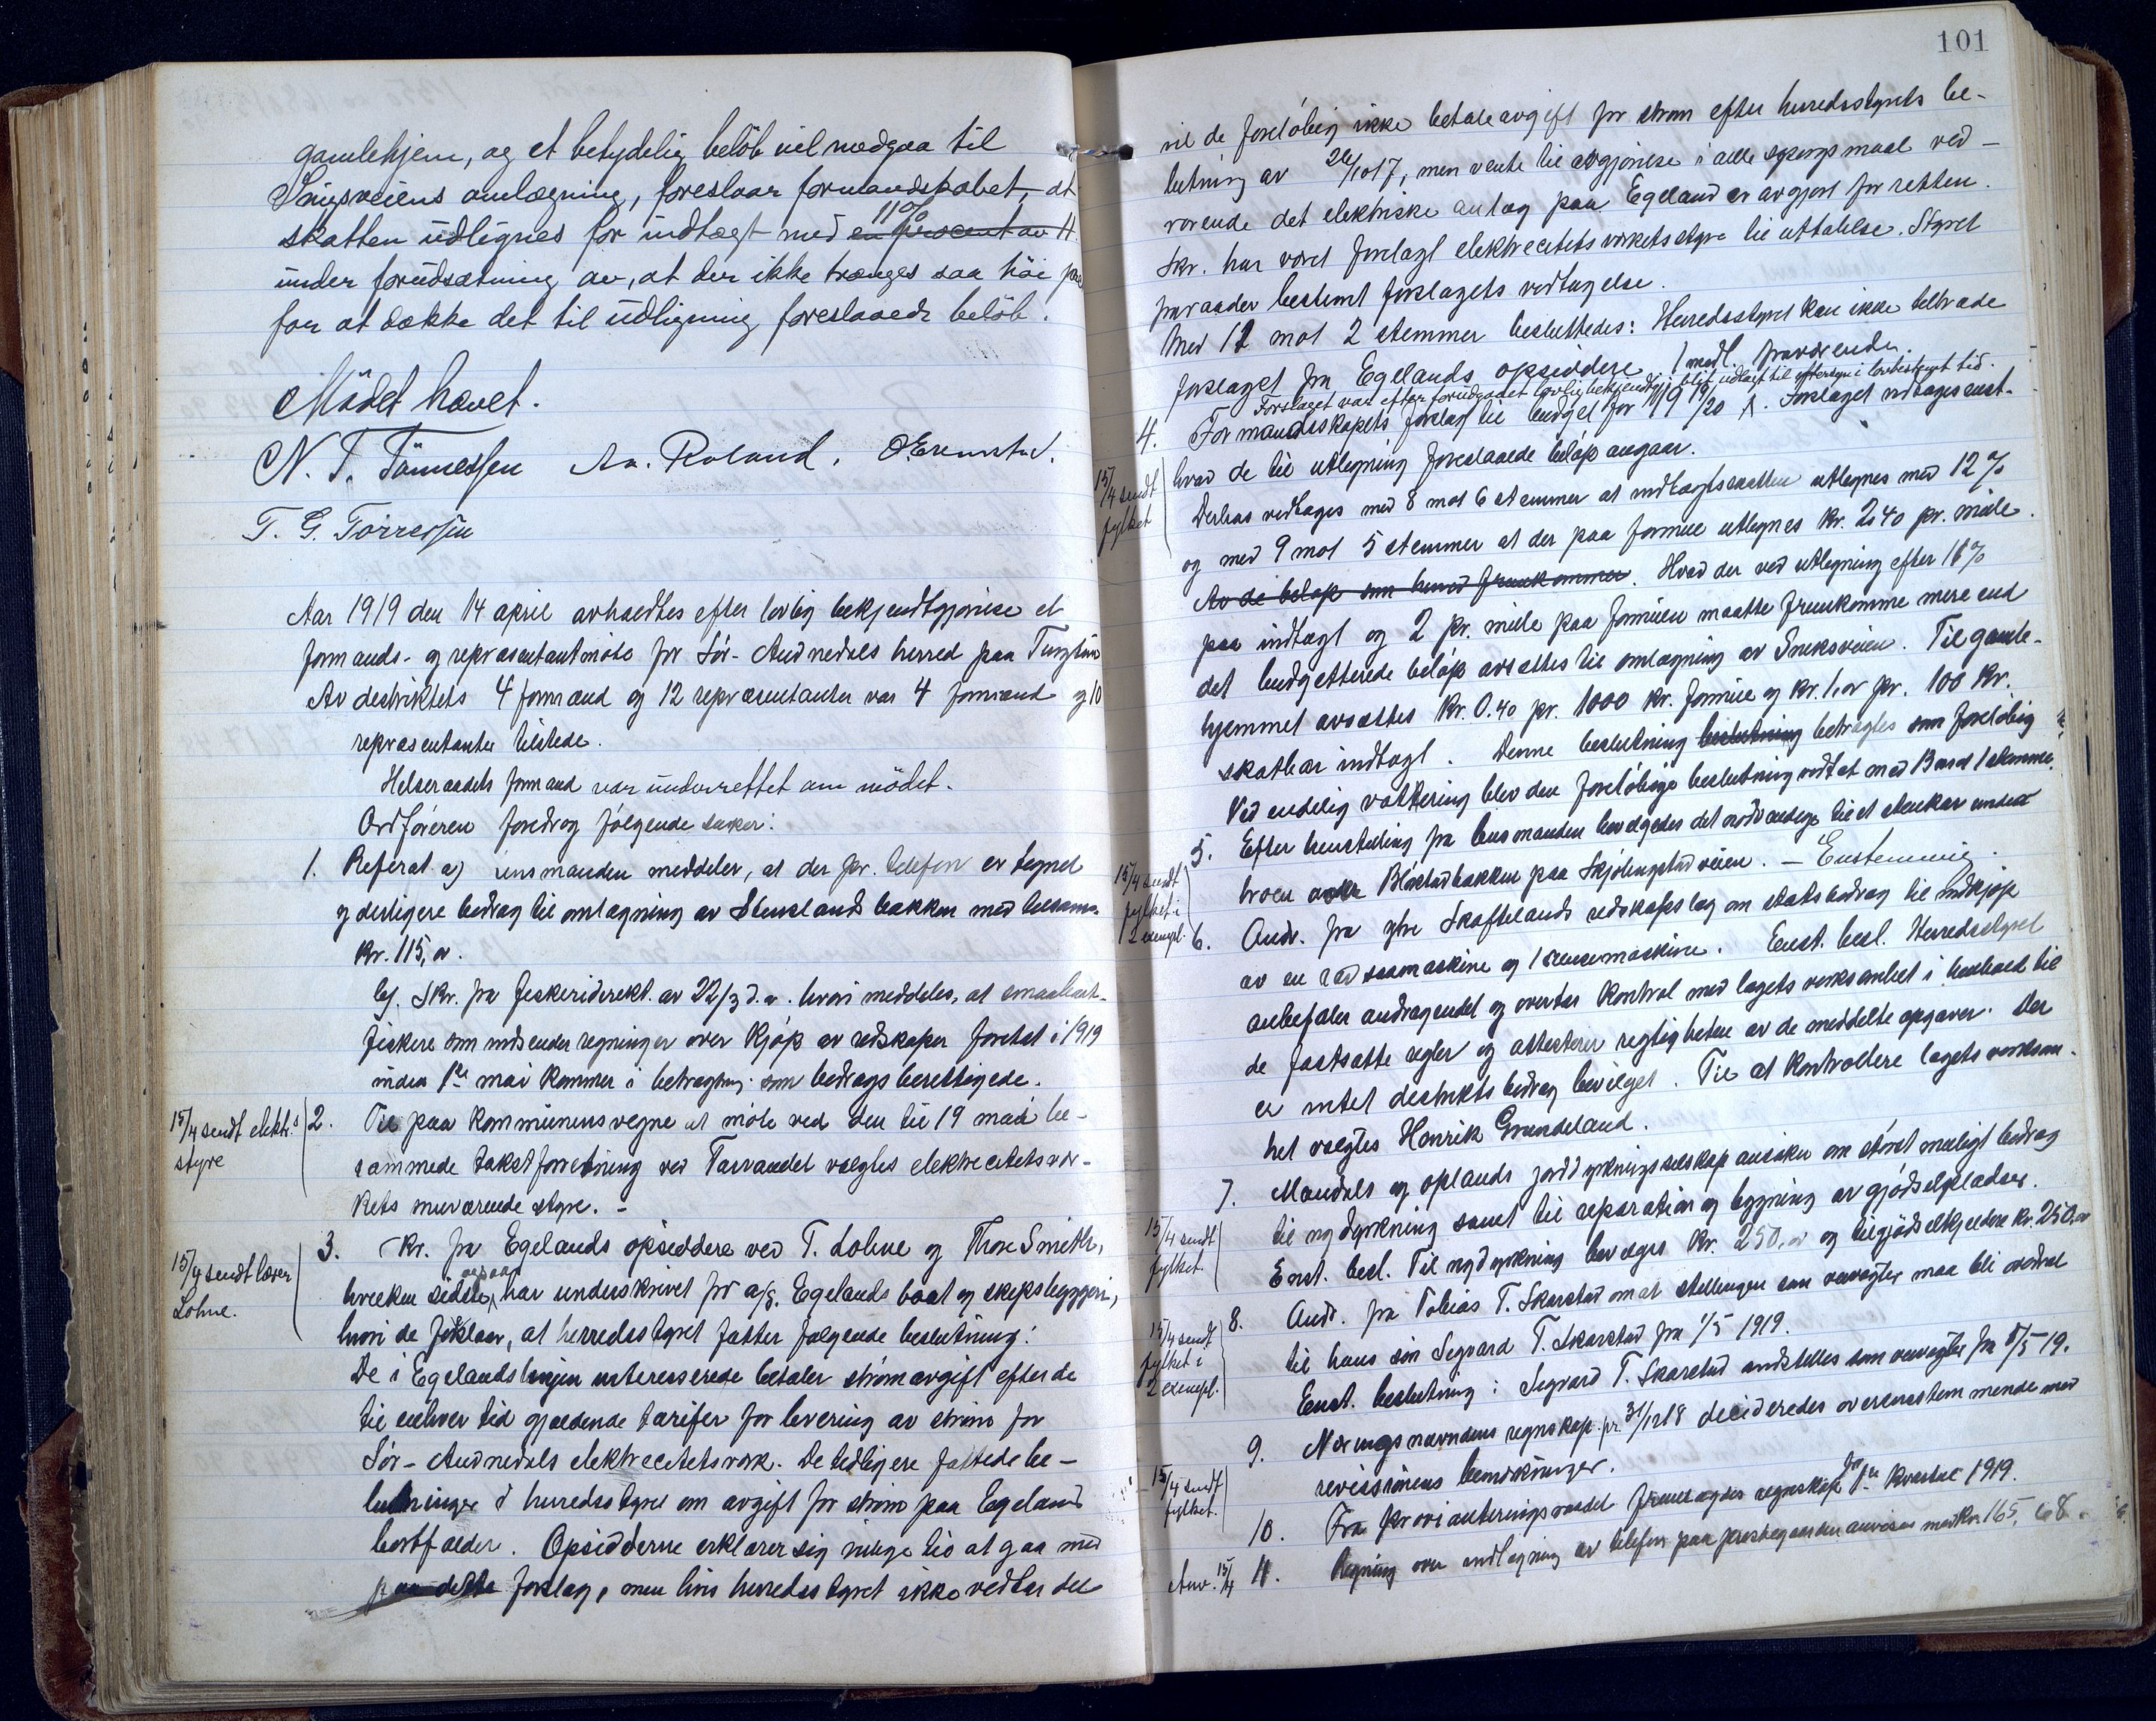 gamlehjem, og et betydelig beløb vil medgaa til
omlægning, foreslaar formandskabet, at
skatten udlignes for indtægt med 11% en procent av
under forudsætning av, at der ikke trænges saa høi
for at dække det til udligning foreslaaede beløb.
Mödet hævet.
N. T. Tönnessen Aa. Roland.
T. G. Torressen
Aar 1919 den 14 april avholdtes efter lovlig bekjendtgjørelse et
formands- og repræsentantmöte for Sör-Audnedals herred paa
Av destriktets 4 formænd og 12 repræsentanter var 4 formænd og 10
repræsentanter tilstede.
Helseraadets formand var underrettet om mödet.
Ordföreren foredrog fölgende saker:
1. Referat a) Lensmanden meddeler, at der pr. telefon er tegnet
yderligere bedrag til omlægning av bakken med tilsam.
kr. 115,00.
b). Skr. fra fiskeridirekt. av 22/3 d.a. hvori meddeles, at smaabaat-
fiskere som indsender regninger over kjöp av redskaper foretat i 1919
inden 1ste mai kommer i betragtning som bedragsberettigede.
15/4 sendt elektr.s
styre
2. Til paa kommunens vegne at möte ved den til 19 mai be-
rammede takstforretning ved Tarvandet valgtes elektrecitetsvær-
kets nuværende styre. -
15/4 sendt lærer
Lohne.
3. Skr. fra Egelands opsiddere ved T. Lohne og Thore Smith,
hvilken sidste ogsaa har underskrevet for a/s. Egelands baat og skipsbyggeri,
hvori de foreslaar, at herredsstyret fatter følgende beslutning:
De i Egelandslinjen interesserede betaler strömavgift efter de
til enhver tid gjældende tarifer for levering av ström for
Sör-Audnedals elektrecitetsverk. De tidligere fattede be-
slutninger i herredsstyret om avgift for ström paa Egeland
bortfalder. Opsidderne erklærer sig villige til at gaa med
paa dette forslag, men hvis herredsstyret ikke vedtar det
101
vil de foreløbig ikke betale avgift for strøm efter herredsstyrets be-
slutning av 26/10 17, men vente til avgjørelse i alle spørgsmaal ved-
rørende det elektriske anlæg paa Egeland er avgjort for retten.
Skr. har været forelagt elektrecitetsverkets styre til uttalelse. Styret
fraraader bestemt forslagets vedtagelse.
Med 12 mot 2 stemmer besluttedes: Herredsstyret kan ikke tiltræde
forslaget fra Egelands opsiddere. 1 medl. fraværende.
Forslaget var efter forudgaaet lovlig bekjendtgj. blit utlagt til eftersyn i lovbestemt tid.
4. Formandsskapets forslag til budget for 1919/20. Forslaget vedtages enst.
15/4 sendt
fylket
hvad de til utligning foreslaaede beløp angaar.
Derhos vedtages med 8 mot 6 stemmer at indtægtsskatten utlignes med 12%
og med 9 mot 5 stemmer at der paa formue utlignes kr. 2,40 pr. mille.
Av de beløp som herved fremkommer. Hvad der ved utligning efter 11%
paa indtægt og 2 pr. mille paa formuen maatte fremkomme mere end
det budgetterede beløp avsættes til omlægning av Til gamle-
hjemmet avsættes kr. 0.40 pr. 1000 kr. formue og kr. 1,00 pr. 100 kr.
skatbar indtægt. Denne beslutning beslutning betragtes som foreløbig
Ved endelig vottering blev den foreløbige beslutning vedtat med 13 mot 1 stemme.
15/4 sendt
fylket i
2 exempl.
5. Efter henstilling fra lensmanden bevilgedes det nødvendige til et
broen Blørstadbakken paa Skjølingstadveien. - Enstemmig.
6. Andr. fra ytre Skoftelands redskapslag om statsbedrag til indkjøp
av en rad saamaskine og 1 rensemaskine. Enst. besl. Herredsstyret
anbefaler andragendet og overtar kontrol med lagets virksomhet i henhold til
de fastsatte regler og attesterer rigtigheten av de meddelte opgaver. Der
er intet destriktsbedrag bevilget. Til at kontrollere lagets virksom-
het valgtes Henrik Grundeland.
15/4 sendt
fylket.
7. Mandals og oplands jorddyrkningsselskap ansøker om størst muligt bedrag
til nydyrkning samt til reparation og bygning av gjødselpladser.
Enst. besl. Til nydyrkning bevilges kr. 250,00 og til gjødselkjeldere kr. 250,00
15/4 sendt
fylket i
2 exempl.
8. Andr. fra Tobias T. Skarstad om at stillingen som veivogter maa bli overdrat
til hans søn Segvard T. Skarstad fra 1/5 1919.
Enst. beslutning: Segvard T. Skarstad indstilles som veivogter fra 1/5 19.
15/4 sendt
fylket.
9. Næringsnævndens regnskap pr. 31/12 18 decideredes overensstemmende med
revisionens bemærkninger.
10. Fra provianteringsraadet fremlagdes regnskap for 1ste kvartal 1919.
Anv. 15/4 11. Regning over indlægning av telefon paa prestegaarden anvises med kr. 165,68.